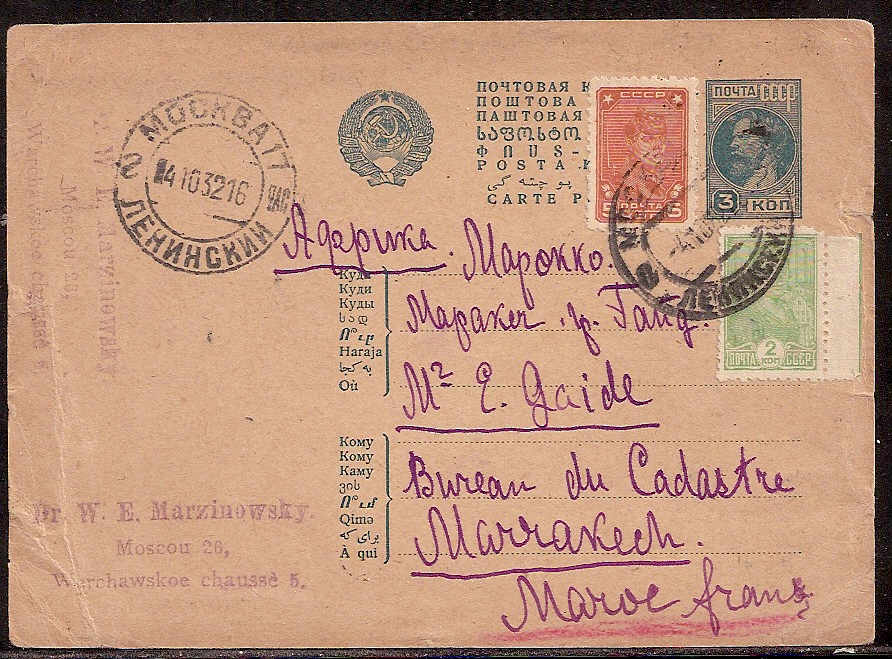 ПОЧТОВАЯ К
ПОШТОВА
ПАШТОВАЯ
ՓՈՍՏ-
POSTA K
CARTE P
СССР
5 ПОЧТА 5
ПОЧТА СССР
3 КОП
МОСКВА 17
4 10 32 16
ЛЕНИНСКИЙ
ЛЕНИНСКИЙ
2
ПОЧТА КОП СССР
Африка. Марокко.
Маракеш. гр. Гаид.
Mr E. Gaide
Bureau du Cadastre
Marrakech.
Maroc franç
Куда
Куди
Куды
სად
Haraja
به کجا
Où
Кому
Кому
Каму
ვის
Qimə
برای که
À qui
Dr. W. E. Marzinowsky.
Moscou 26,
Warchawskoe chaussè 5.
W. E. Marzinowsky
Moscou 26,
Warchawskoe chaussè